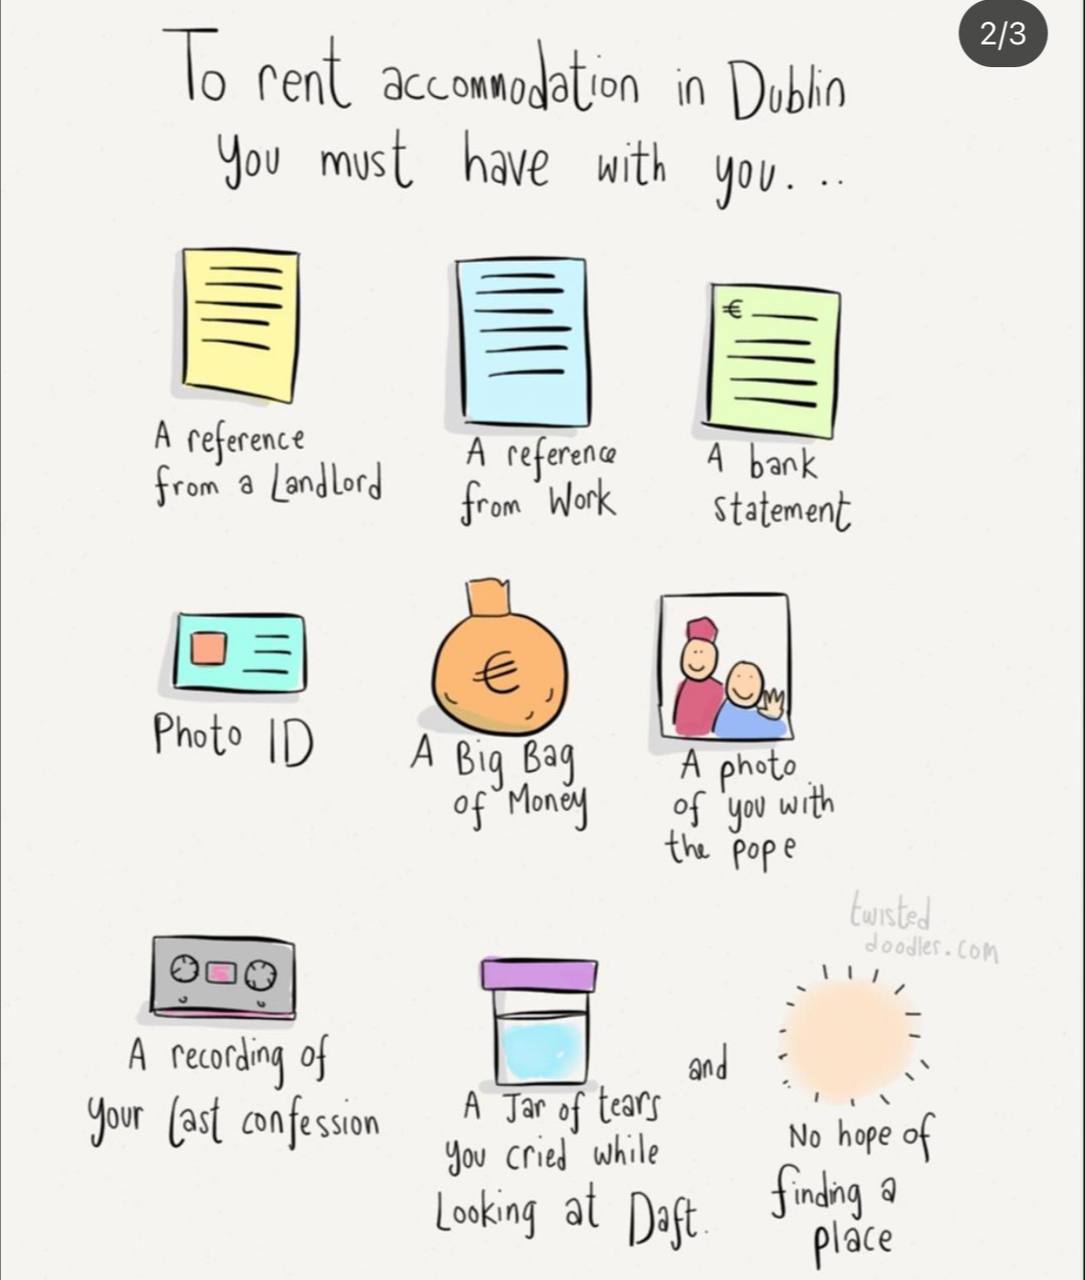 2/3
To rent accommodation in Dublin
you must have with you...
€
A reference
from a Landlord
A reference
from Work
A bank
statement
€
Photo ID
A Big Bag
of Money
A photo
of you with
the pope
twisted
doodler.com
A recording of
your last confession
A Jar of tears
you cried while
Looking at Daft.
and
No hope of
finding a
place